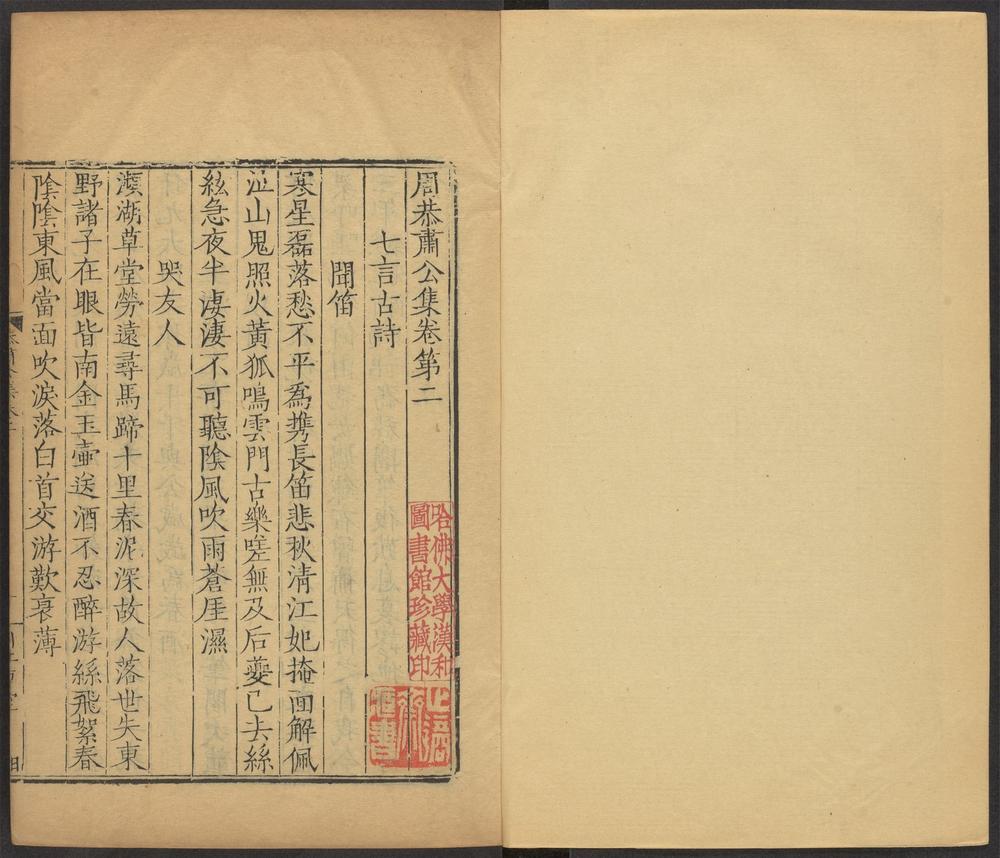 周恭肅公集卷第二
七言古詩
聞笛
寒星磊落愁不平爲携長笛悲秋清江妃掩面解佩
泣山鬼照火黃狐鳴雲門古樂嗟無及后夔已去絲
絃急夜半淒淒不可聽陰風吹雨蒼厓濕
哭友人
瀕湖草堂勞遠尋馬蹄十里春泥深故人落世失東
野諸子在眼皆南金玉壷送酒不忍醉游絲飛絮春
陰陰東風當面吹淚落白首交游歎衰薄
哈佛大學漢和
圖書館珍藏印